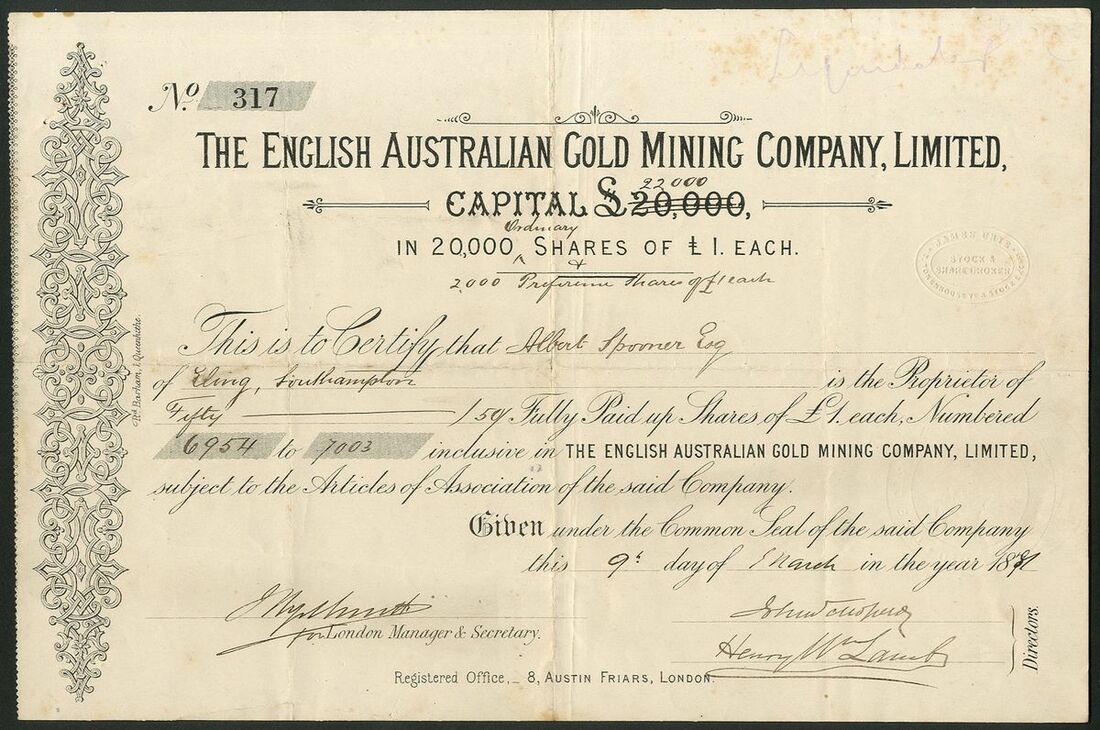 No. 317
THE ENGLISH AUSTRALIAN GOLD MINING COMPANY, LIMITED,
22000
CAPITAL £20,000,
Ordinary
IN 20,000 SHARES OF £1. EACH.
&
2,000 Preference Shares of £1 each
This is to Certify that Albert Spooner Esq
of Eling, Southampton is the Proprietor of
Fifty /50/ Fully Paid up Shares of £1. each, Numbered
6954 to 7003 inclusive in THE ENGLISH AUSTRALIAN GOLD MINING COMPANY, LIMITED,
subject to the Articles of Association of the said Company.
Given under the Common Seal of the said Company
this 9th day of March in the year 1891
for London Manager & Secretary.
Henry Wm Lamb
Directors.
Registered Office, 8, AUSTIN FRIARS, LONDON.
JAMES
STOCK &
SHAREBROKER
Barham, Queenhithe.